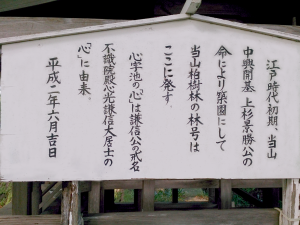 江戸時代初期、当山
中興開基 上杉景勝公の
命により築園にして
当山柏樹林の林号は
ここに発す。
心字池の「心」は謙信公の戒名
不識院殿心光謙信大居士の
「心」に由来。
平成二年六月吉日